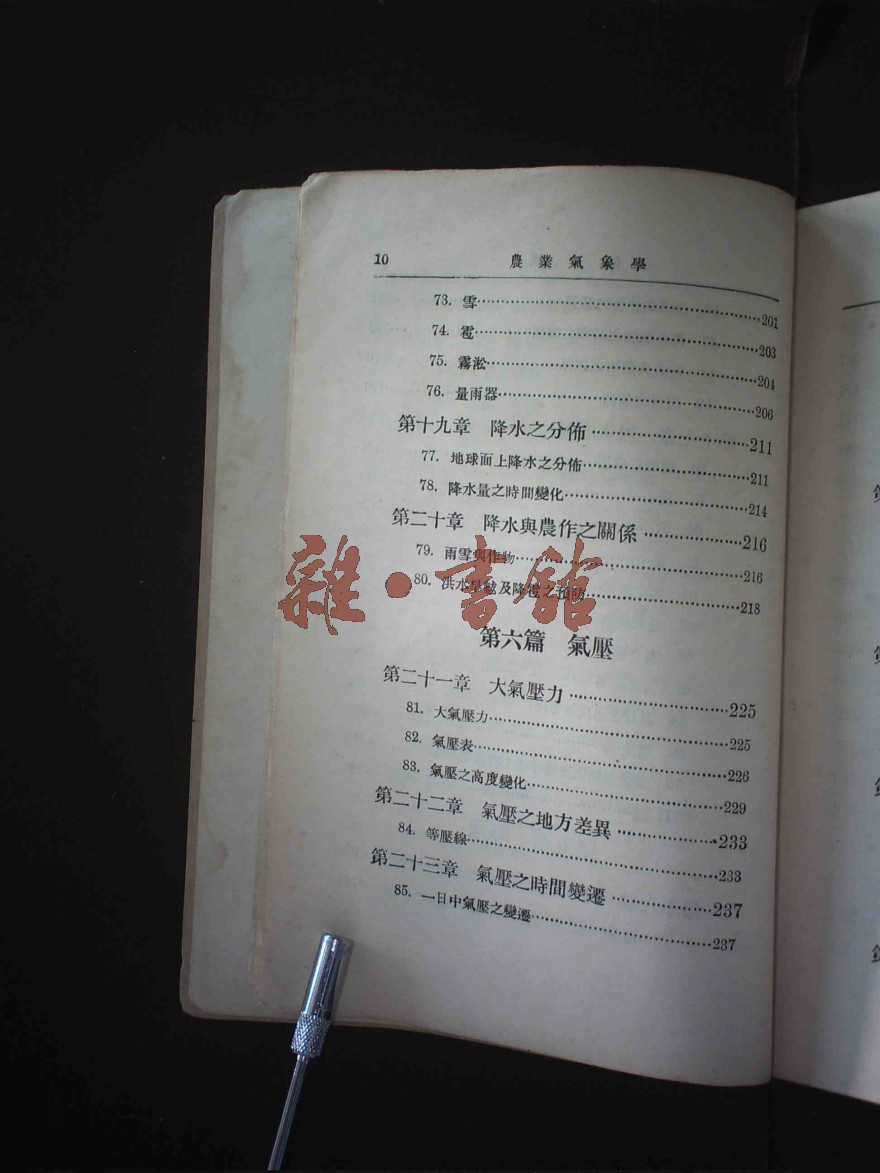 10 農業氣象學
73. 雪……201
74. 雹……203
75. 霧淞……204
76. 量雨器……206
第十九章 降水之分佈……211
77. 地球面上降水之分佈……211
78. 降水量之時間變化……214
第二十章 降水與農作之關係……216
79. 雨雪與作物……216
80. 洪水旱魃及降雹之預防……218
雜·書館
第六篇 氣壓
第二十一章 大氣壓力……225
81. 大氣壓力……225
82. 氣壓表……226
83. 氣壓之高度變化……229
第二十二章 氣壓之地方差異……233
84. 等壓線……233
第二十三章 氣壓之時間變遷……237
85. 一日中氣壓之變遷……237